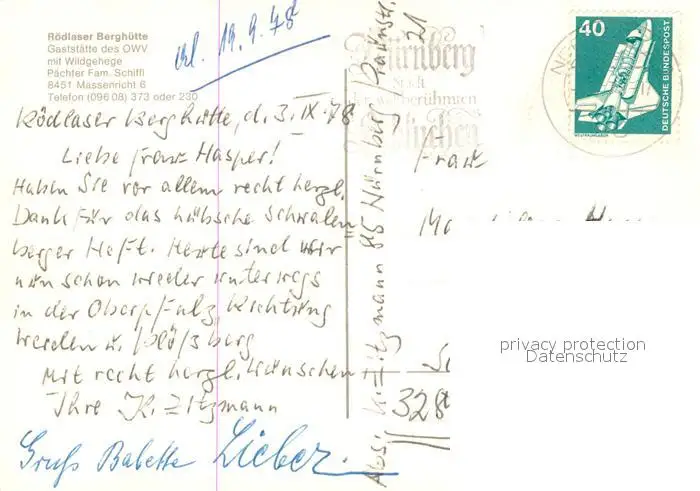 Rödlaser Berghütte
Gaststätte des OWV
mit Wildgehege
Pächter Fam. Schiffl
8451 Massenricht 6
Telefon (096 08) 373 oder 230
19.9.78
Rödlaser Berghütte, d. 3. IX 78
Liebe Frau Hasper!
Haben Sie vor allem recht herzl.
Dank für das hübsche Schwalen
berger Heft. Heute sind wir
nun schon wieder unterwegs
in der Oberpfalz, Richtung
Weiden u.
Mit recht herzl. Wünschen
Ihre K. Zitzmann
Gruß Babette Lieber.
Abs. K. Zitzmann 85 Nürnberg
21
Nürnberg
Stadt
der weltberühmten
Lebkuchen
40
DEUTSCHE BUNDESPOST
Frau
328
privacy protection
Datenschutz